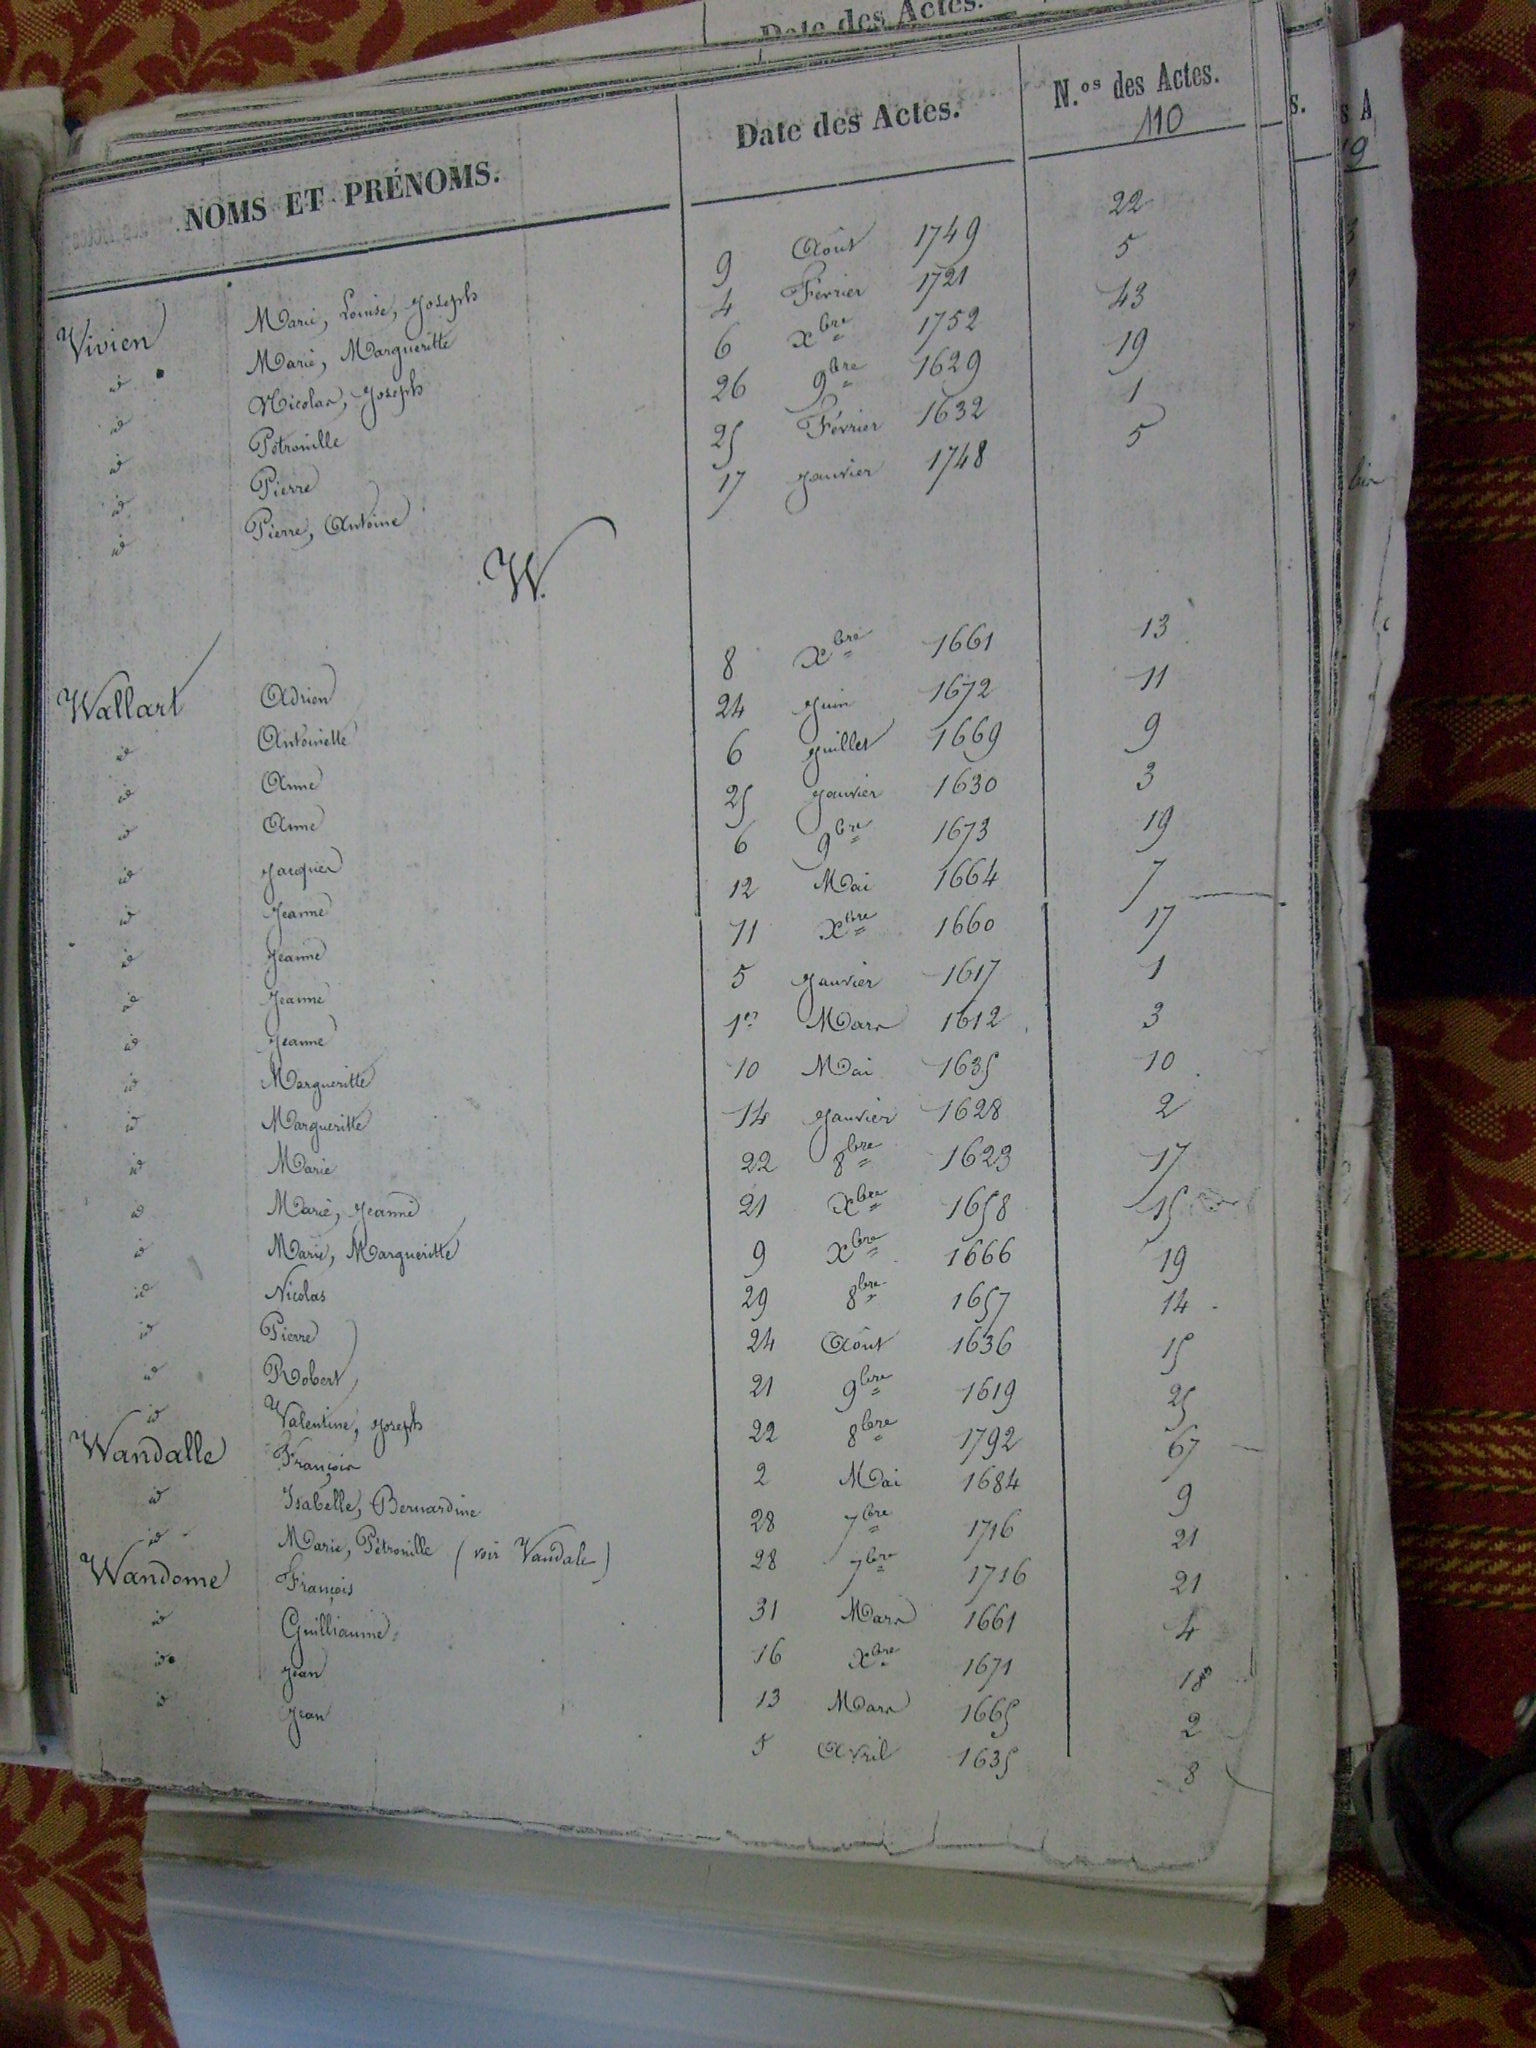 Date des Actes.
NOMS ET PRÉNOMS. Date des Actes. N.os des Actes.
110
Vivien Marie, Louise, Joseph 9 Août 1749 22
id Marie, Margueritte 4 Février 1721 5
id Nicolas, Joseph 6 Xbre 1752 43
id Pétronille 26 9bre 1629 19
id Pierre 25 Février 1632 1
id Pierre, Antoine 17 Janvier 1748 5
W.
Wallart Adrien 8 Xbre 1661 13
id Antoinette 24 Juin 1672 11
id Anne 6 Juillet 1669 9
id Anne 25 Janvier 1630 3
id Jacques 6 9bre 1673 19
id Jeanne 12 Mai 1664 7
id Jeanne 11 Xbre 1660 17
id Jeanne 5 Janvier 1617 1
id Jeanne 1er Mars 1612 3
id Margueritte 10 Mai 1635 10
id Margueritte 14 Janvier 1628 2
id Marie 22 8bre 1623 17
id Marie, Jeanne 21 Xbre 1658 15
id Marie, Margueritte 9 Xbre 1666 19
id Nicolas 29 8bre 1657 14
id Pierre 24 Août 1636 15
id Robert 21 9bre 1619 25
id Valentine, Joseph 22 8bre 1792 67
Wandalle François 2 Mai 1684 9
id Isabelle, Bernardine 28 7bre 1716 21
id Marie, Pétronille (voir Vandale) 28 7bre 1716 21
Wandome François 31 Mars 1661 4
id Guilliaume 16 Xbre 1671 18
id Jean 13 Mars 1665 2
id Jean 5 Avril 1635 8